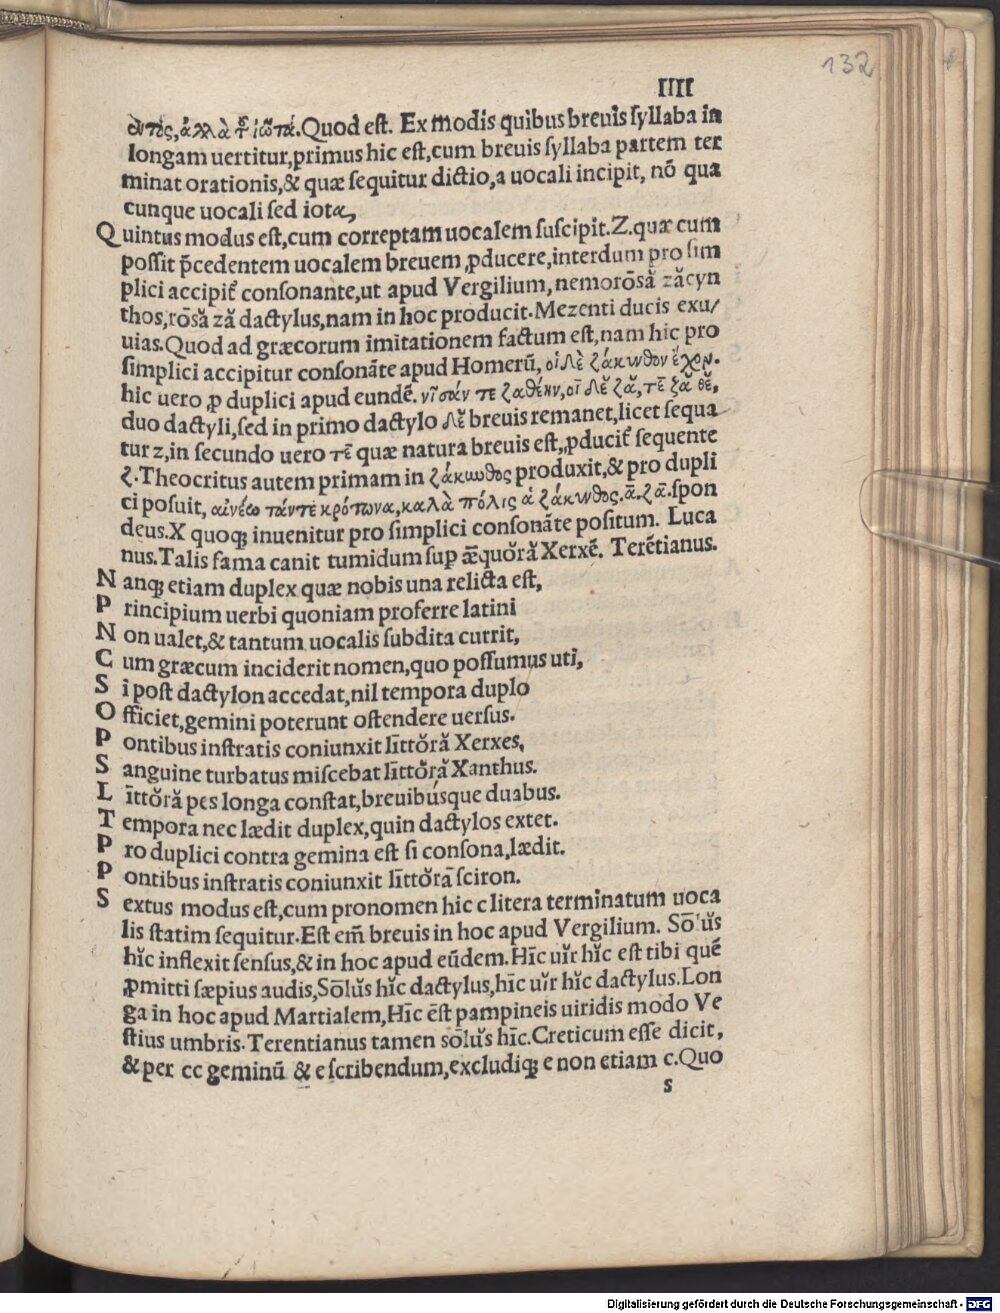 132
IIII
ὄντος, ἀλλὰ τὸ ἰῶτα. Quod eſt. Ex modis quibus breuis ſyllaba in
longam uertitur, primus hic eſt, cum breuis ſyllaba partem ter
minat orationis, & quæ ſequitur dictio, a uocali incipit, nō qua
cunque uocali ſed iota,
Quintus modus eſt, cum correptam uocalem ſuſcipit. Z. quæ cum
poſſit p̄cedentem uocalem breuem ꝓducere, interdum pro ſim
plici accipit᷑ conſonante, ut apud Vergilium, nemorōsă zăcyn
thos, rōsă ză dactylus, nam in hoc producit. Mezenti ducis exu/
uias. Quod ad græcorum imitationem factum eſt, nam hic pro
ſimplici accipitur conſonāte apud Homerū, οἱ δὲ ζάκυνθον ἔχον.
hic uero ꝓ duplici apud eundē. νῖσάν τε ζαθέην, οἱ δὲ ζᾰ, τε ζᾰ θε,
duo dactyli, ſed in primo dactylo δὲ breuis remanet, licet ſequa
tur z, in ſecundo uero τε quæ natura breuis eſt, ꝓducit᷑ ſequente
ζ. Theocritus autem primam in ζάκυνθος produxit, & pro dupli
ci poſuit, αἰνέω τάντε κρότωνα, καλὰ πόλις ἁ ζάκυνθος. ᾱ. ζᾱ. ſpon
deus. X quoqꝫ inuenitur pro ſimplici conſonāte poſitum. Luca
nus. Talis fama canit tumidum ſup ǣquŏră Xerxē. Terētianus.
Nanqꝫ etiam duplex quæ nobis una relicta eſt,
Principium uerbi quoniam proferre latini
Non ualet, & tantum uocalis ſubdita currit,
Cum græcum inciderit nomen, quo poſſumus uti,
Si poſt dactylon accedat, nil tempora duplo
Officiet, gemini poterunt oſtendere uerſus.
Pontibus inſtratis coniunxit līttŏră Xerxes,
Sanguine turbatus miſcebat līttŏră Xanthus.
Līttŏră pes longa conſtat, breuibúsque duabus.
Tempora nec lædit duplex, quin dactylos extet.
Pro duplici contra gemina eſt ſi conſona, lædit.
Pontibus inſtratis coniunxit līttŏrā ſciron.
Sextus modus eſt, cum pronomen hic c litera terminatum uoca
lis ſtatim ſequitur. Eſt em̄ breuis in hoc apud Vergilium. Sōlŭs
hĭc inflexit ſenſus, & in hoc apud eūdem. Hīc uĭr hĭc eſt tibi quē
ꝓmitti ſæpius audis, Sōlŭs hĭc dactylus, hīc uĭr hĭc dactylus. Lon
ga in hoc apud Martialem, Hīc ēſt pampineis uiridis modo Ve
ſtius umbris. Terentianus tamen sōlŭs hīc. Creticum eſſe dicit,
& per cc geminū & e ſcribendum, excludiqꝫ e non etiam c. Quo
s
Digitalisierung gefördert durch die Deutsche Forschungsgemeinschaft - DFG